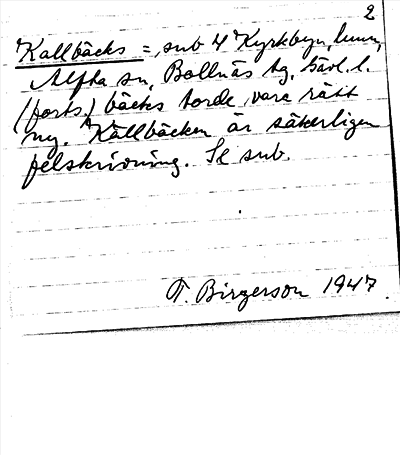 2
Kallbäcks =, sub 4 Kyrkbyn,
Alfta sn, Bollnäs tg, Gävl. l.
(forts.) bäcks torde vara rätt
ny. Källbäcken är säkerligen
felskrivning. Se sub.
T. Birgerson 1947.